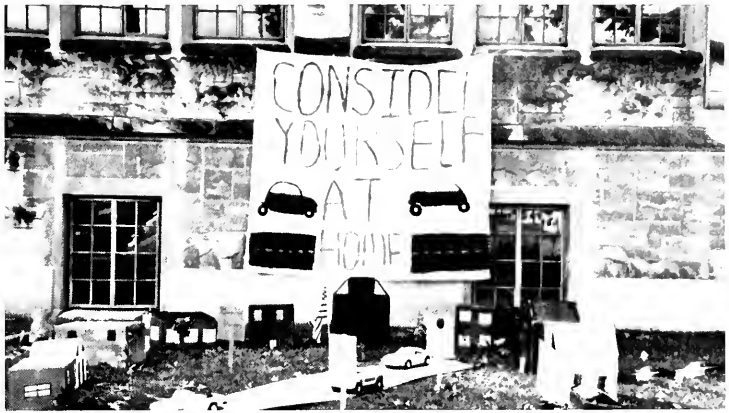 CONSIDER
YOURSELF
AT
HOME